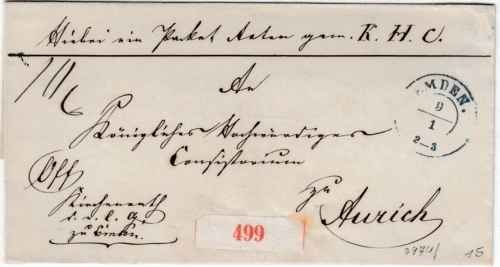 Hiebei ein Packet Acten gem. K. H. C.
An
Königliches Hochwürdiges
Consistorium
zu
Aurich
Kirchenrath
zu Emden.
EMDEN.
9
1
2-3
499
15